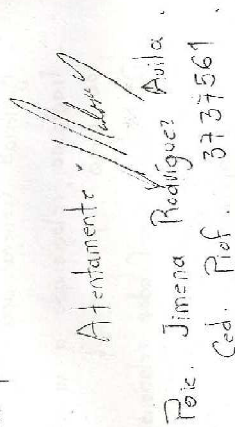 Atentamente
Psic. Jimena Rodríguez Avila.
Ced. Prof. 3737569